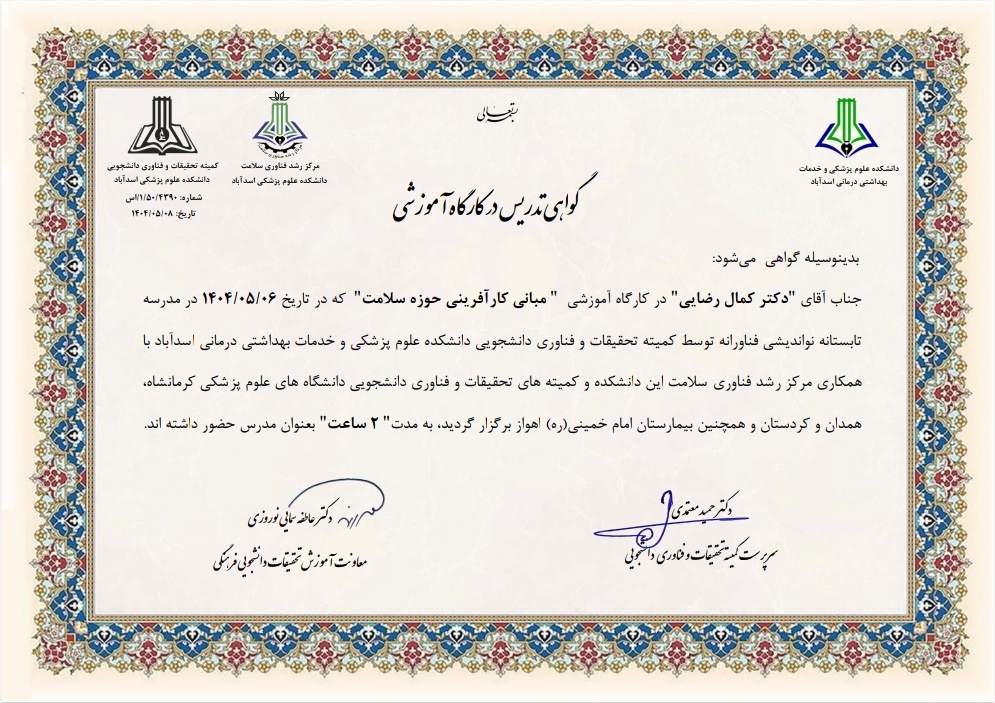 بسمه تعالی
دانشکده علوم پزشکی و خدمات
بهداشتی درمانی اسدآباد
مرکز رشد فناوری سلامت
دانشکده علوم پزشکی اسدآباد
کمیته تحقیقات و فناوری دانشجویی
دانشکده علوم پزشکی اسدآباد
شماره: ۱/۵۰/۴۳۹۰/اس
تاریخ: ۱۴۰۴/۰۵/۰۸
گواهی تدریس در کارگاه آموزشی
بدینوسیله گواهی می‌شود:
جناب آقای "دکتر کمال رضایی" در کارگاه آموزشی " مبانی کارآفرینی حوزه سلامت" که در تاریخ ۱۴۰۴/۰۵/۰۶ در مدرسه
تابستانه نواندیشی فناورانه توسط کمیته تحقیقات و فناوری دانشجویی دانشکده علوم پزشکی و خدمات بهداشتی درمانی اسدآباد با
همکاری مرکز رشد فناوری سلامت این دانشکده و کمیته های تحقیقات و فناوری دانشجویی دانشگاه های علوم پزشکی کرمانشاه،
همدان و کردستان و همچنین بیمارستان امام خمینی(ره) اهواز برگزار گردید، به مدت" ۲ ساعت" بعنوان مدرس حضور داشته اند.
دکتر حمید معتمدی
سرپرست کمیته تحقیقات و فناوری دانشجویی
دکتر عاطفه سمائی نوروزی
معاونت آموزش تحقیقات دانشجویی فرهنگی